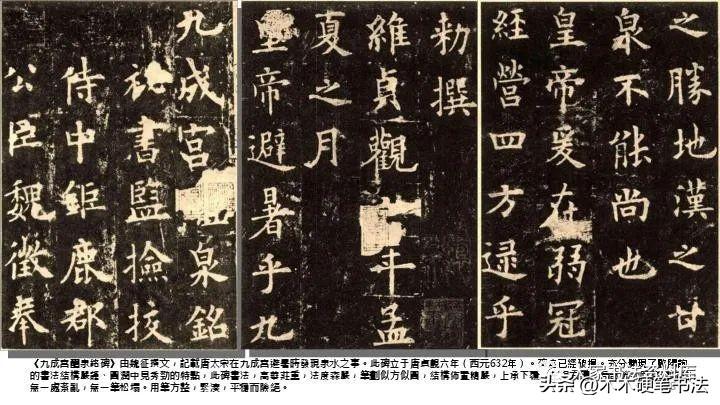 九成宮泉銘
秘書監撿挍
侍中鉅鹿郡
公臣魏徵奉
勑撰
維貞觀年孟
夏之月
皇帝避暑乎九
之勝地漢之甘
泉不能尚也
皇帝爰在弱冠
經營四方逮乎
《九成宮醴泉終碑》由魏征撰文，記載唐太宗在九成宮避暑時發現泉水之事。此碑立于唐貞觀六年（西元632年）。
的書法結構嚴謹、圓潤中見秀勁的特點，此碑書法，高華莊重，法度森嚴，筆劃似方似圓，結構佈置精嚴，上承下覆
無一處紊亂，無一筆松塌。用筆方整，緊湊，平穩而險絕。
头条 @木木硬笔书法